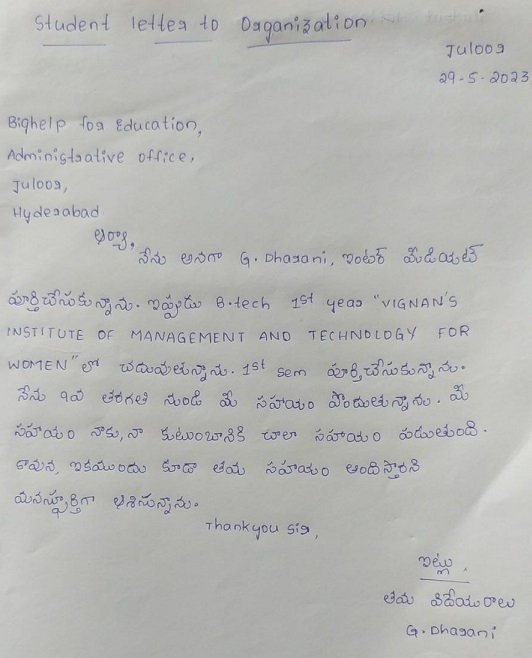 Student letter to Organization
Juloor
29-5-2023
Bighelp for Education,
Administrative office,
Juloor,
Hyderabad
ఆర్యా,
నేను అనగా G. Dharani, ఇంటర్ మీడియట్
పూర్తిచేసుకున్నాను. ఇప్పుడు B.tech 1st year "VIGNAN'S
INSTITUTE OF MANAGEMENT AND TECHNOLOGY FOR
WOMEN" లో చదువుతున్నాను. 1st sem పూర్తిచేసుకున్నాను.
నేను 9వ తరగతి నుండి మీ సహాయం పొందుతున్నాను. మీ
సహాయం నాకు, నా కుటుంబానికి చాలా సహాయం పడుతుంది.
కావున, ఇకముందు కూడా తమ సహాయం అందిస్తారని
మనస్ఫూర్తిగా ఆశిస్తున్నాను.
Thankyou sir,
ఇట్లు.
తమ విదేయురాలు
G. Dharani